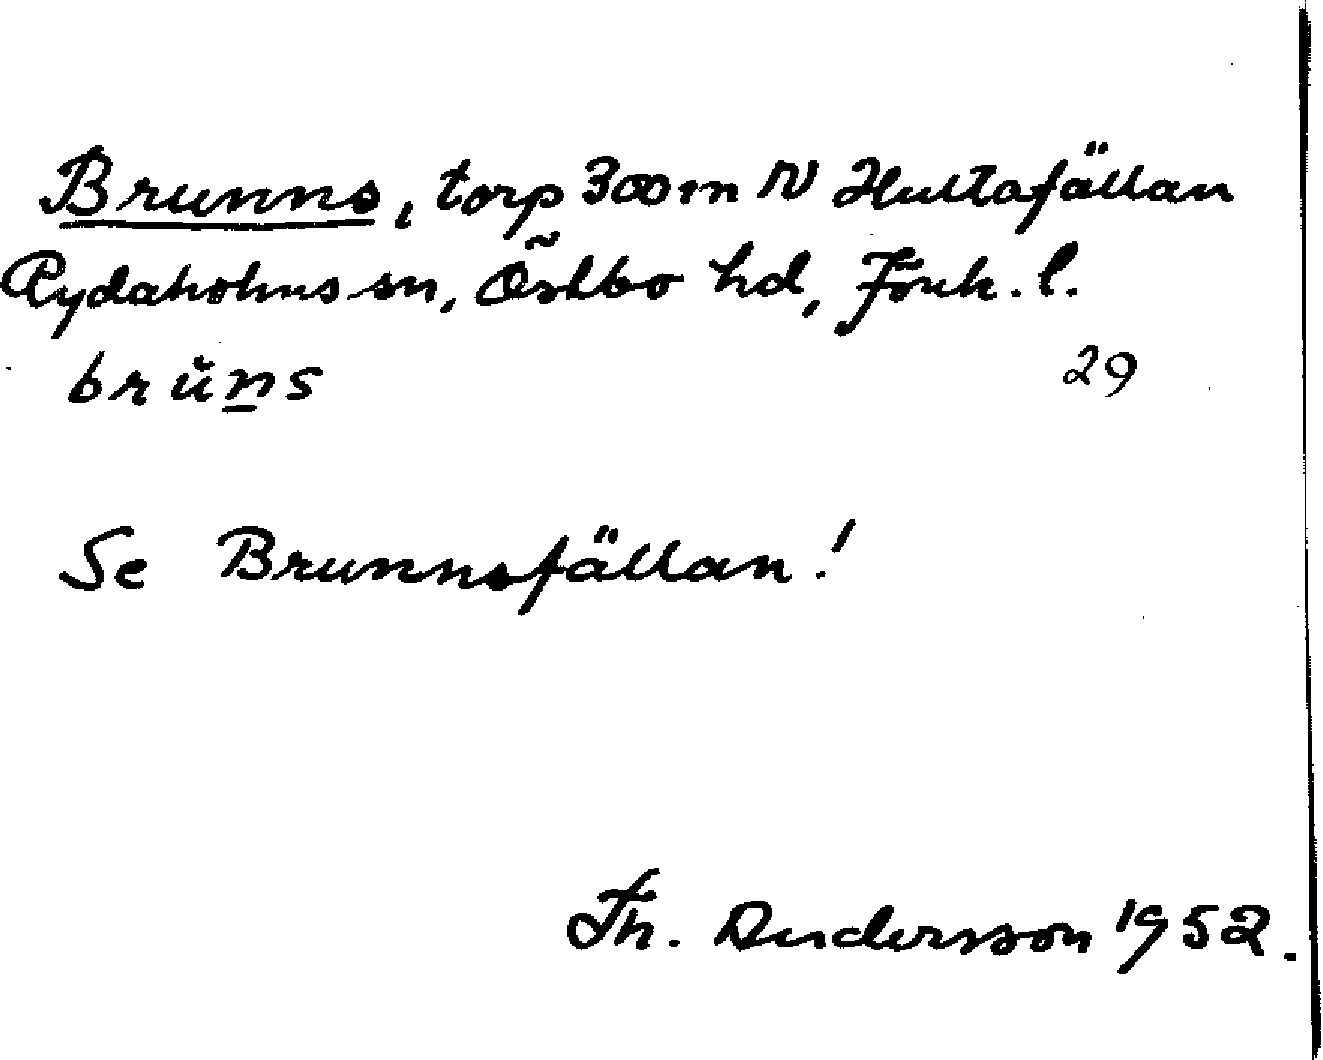 Brunns, torp 300 m N Hultafällan
Rydaholms sn, Östbo hd, Jönk. l.
brŭn̲s 29
Se Brunnsfällan!
Th. Andersson 1952.